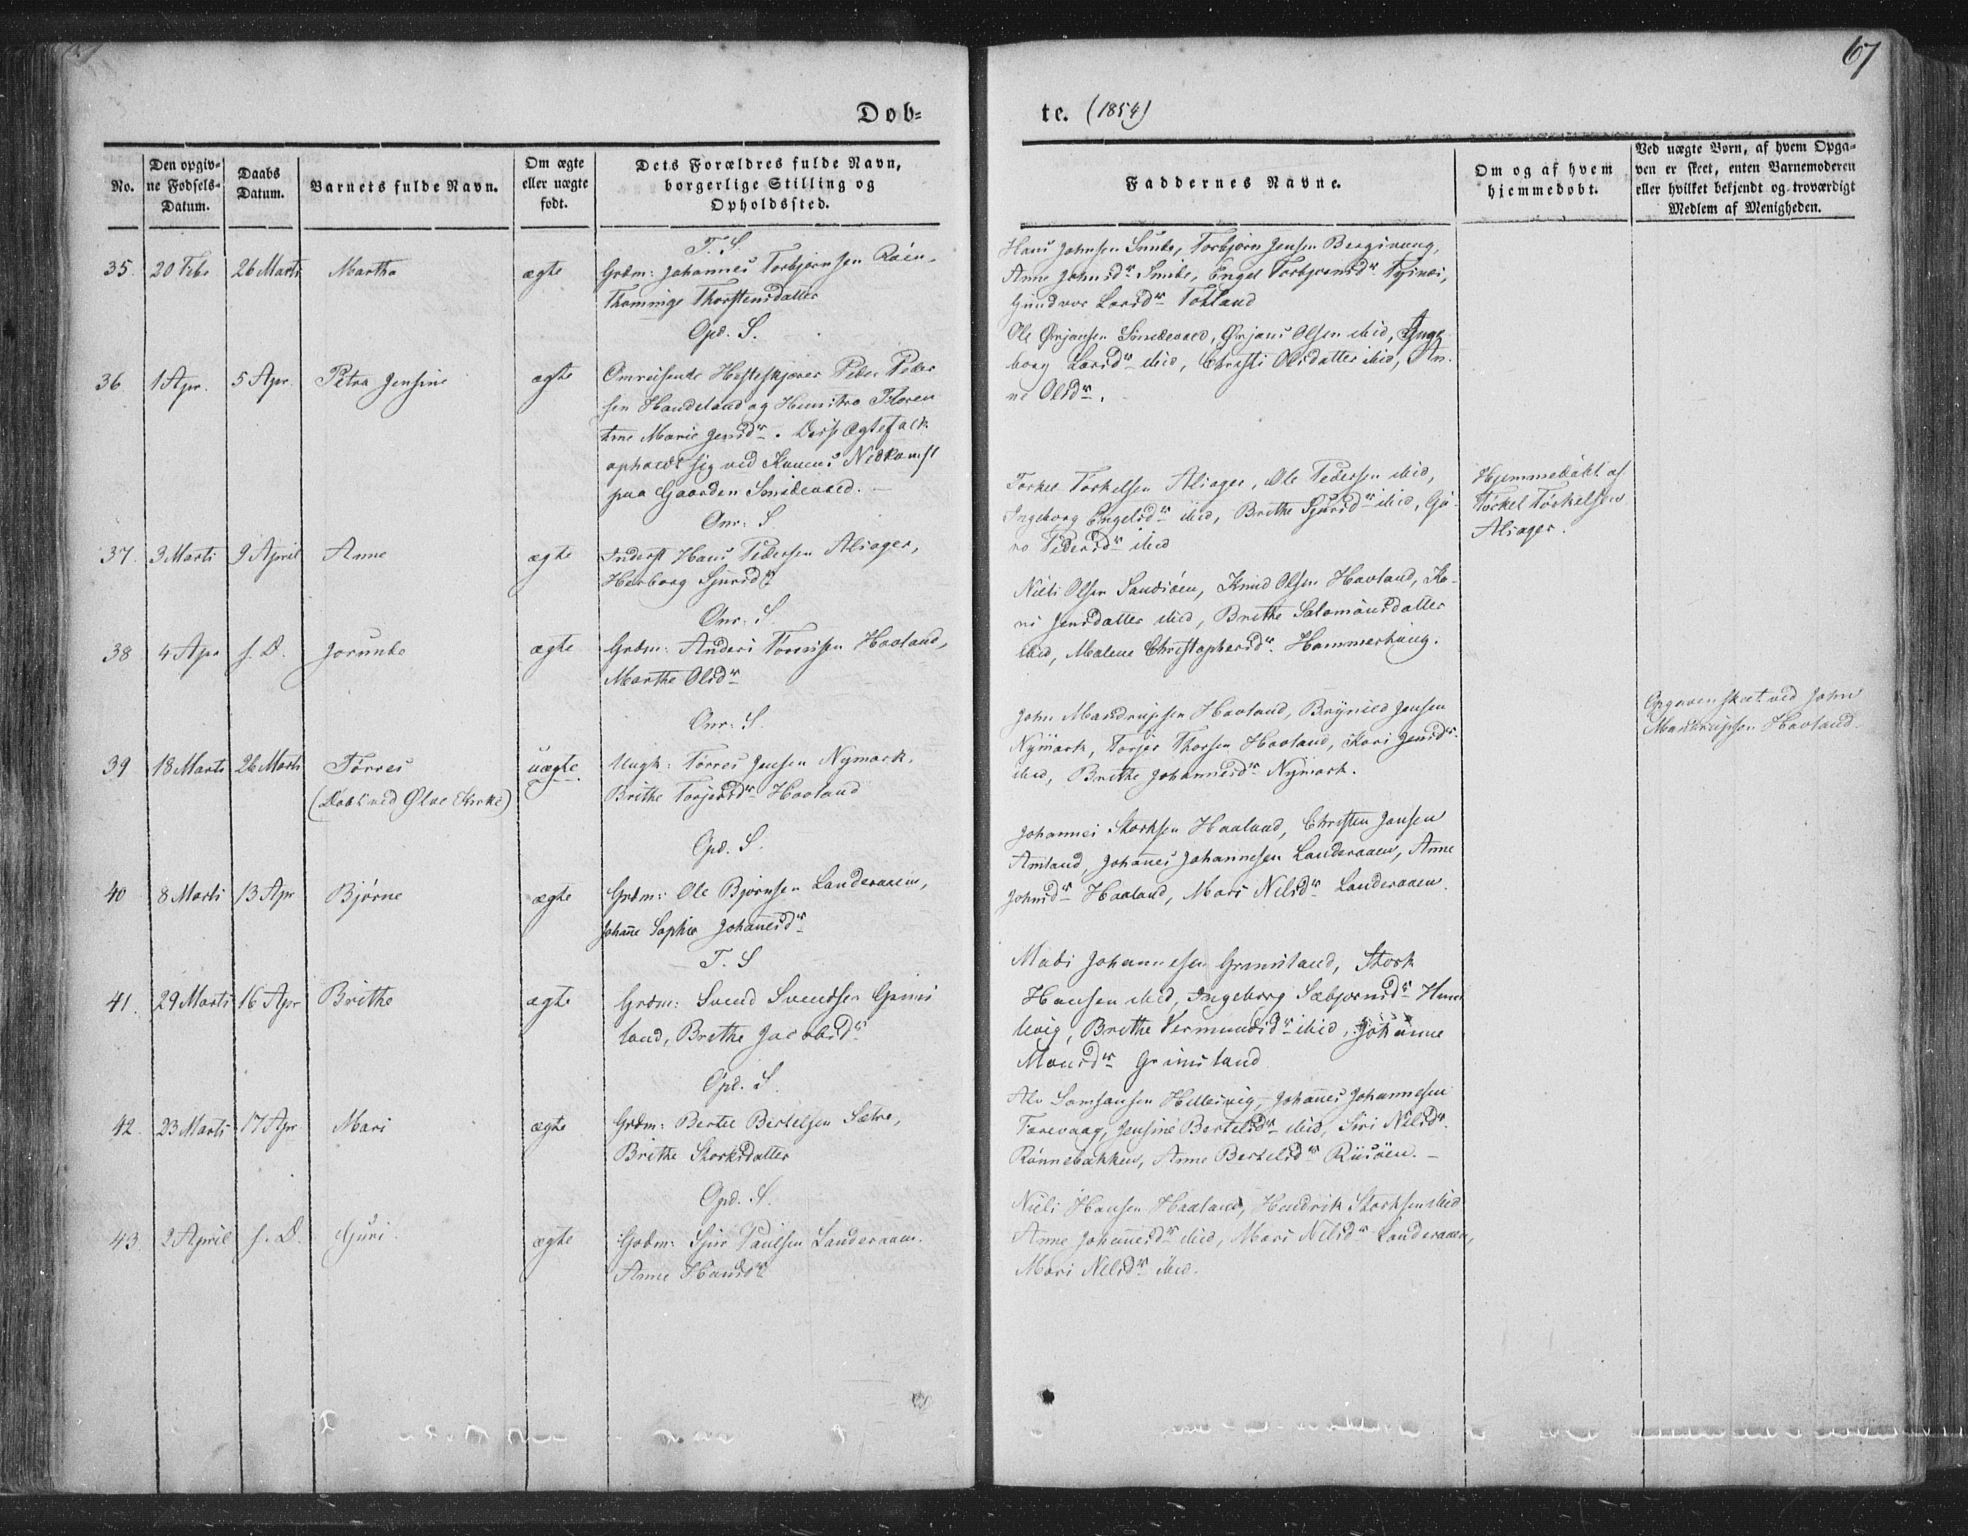 67
Døb-
te. (1854)
No.
Den opgiv-
ne Fødsels-
Datum.
Daabs
Datum.
Barnets fulde Navn.
Om ægte
eller uægte
født.
Dets Forældres fulde Navn,
borgerlige Stilling og
Opholdssted.
Faddernes Navne.
Om og af hvem
hjemmedøbt.
Ved uægte Børn, af hvem Opga-
ven er skeet, enten Barnemoderen
eller hvilket bekjendt og troværdigt
Medlem af Menigheden.
T. S
35. 20 Febr 26 Marts Martha ægte Grdm: Johannes Torbjørnsen Røen,
Thorstensdatter
Hans Johnsen Torbjørn Jensen
Anne Johnsdr Engel Torbjørnsdr Tysnæs,
Gundvor Larsdr Totland
Opd. S.
36 1 Apr. 5 Apr. Petra Jensine ægte Omreisende Hesteskjærer Peder Peder
sen Handeland og Hustru Floren
tine Marie Jensdr. Disse Ægtefolk
opholdt sig ved Konens Nedkomst
paa Gaarden Smidevold. —
Ole Ørjansen Smidevold, Ørjans Olsen ibid, Inge
borg Larsdr ibid, Christi Olsdatter ibid, An-
ne Olsdr.
Onr: S.
37. 3 Marts 9 April Anne ægte Inderst Hans Pedersen Alsager,
Herborg Sjursdr
Torkel Torkelsen Alsager, Ole Pedersen ibid,
Ingeborg Engelsdr ibid, Brithe Sjursdr ibid, Gu-
ro Pedersdr ibid
Hjemmedøbt af
Torkel Torkelsen
Alsager.
Onr: S.
38 4 Apr s. D. Jorunde ægte Grdm: Anders Tørrisen Havland,
Marthe Olsdr
Niels Olsen Sandøen, Knud Olsen Havland, Ka-
ri Jensdatter ibid, Brithe Salomonsdatter
ibid, Malene Christophersdr. Hammerhaug.
Onr: S.
39 18 Marts 26 Marts Tørres uægte Ungk: Torres Jensen Nymark.
(Døbt ved Ølve Kirke) Brithe Torjersdr Havland
John Mandrupsen Havland, Brynild Jensen
Nymark, Torjer Thorsen Havland, Kari Jensdr.
ibid, Brithe Johannesdr Nymark.
Opgaven skeet ved John
Mandrupsen Havland
Opd. S.
40 8 Marts 13 Apr Bjørne ægte Grdm: Ole Bjørnsen Landeraaen,
Johanne Sophie Johannesdr
Johannes Storksen Haaland, Christen Jansen
Amland, Johannes Johannesen Landeraaen, Anne
Johnsdr Haaland, Mari Nilsdr Landeraaen.
T. S
41. 29 Marts 16 Apr Brithe ægte Grdm: Svend Svendsen Grims
land, Brithe Jacobsdr
Mads Johannesen Grimsland, Stork
Hansen ibid, Ingeborg Sæbjørnsdr Hun
Brithe Vermundsdr ibid, Johanne
Monsdr Grimsland
Opd. S.
42. 23 Marts 17 Apr Mari ægte Grdm: Bertel Bertelsen Sætre,
Brithe Storksdatter
Alv Samsonsen Hellesvig, Johannes Johannesen
Tarevaag, Jensine Bertelsdr ibid, Siri Nilsdr.
Rønnebakken, Anne Bertelsdr —
Opd. S.
43. 2 April s. D. Guri ægte Grdm: Sjur Paulsen Landeraaen.
Anne Hansdr
Niels Hansen Haaland, Hendrik Storksen ibid
Anne Johannesdr ibid, Mari Nilsdr Landeraaen,
Mari Nilsdr ibid.